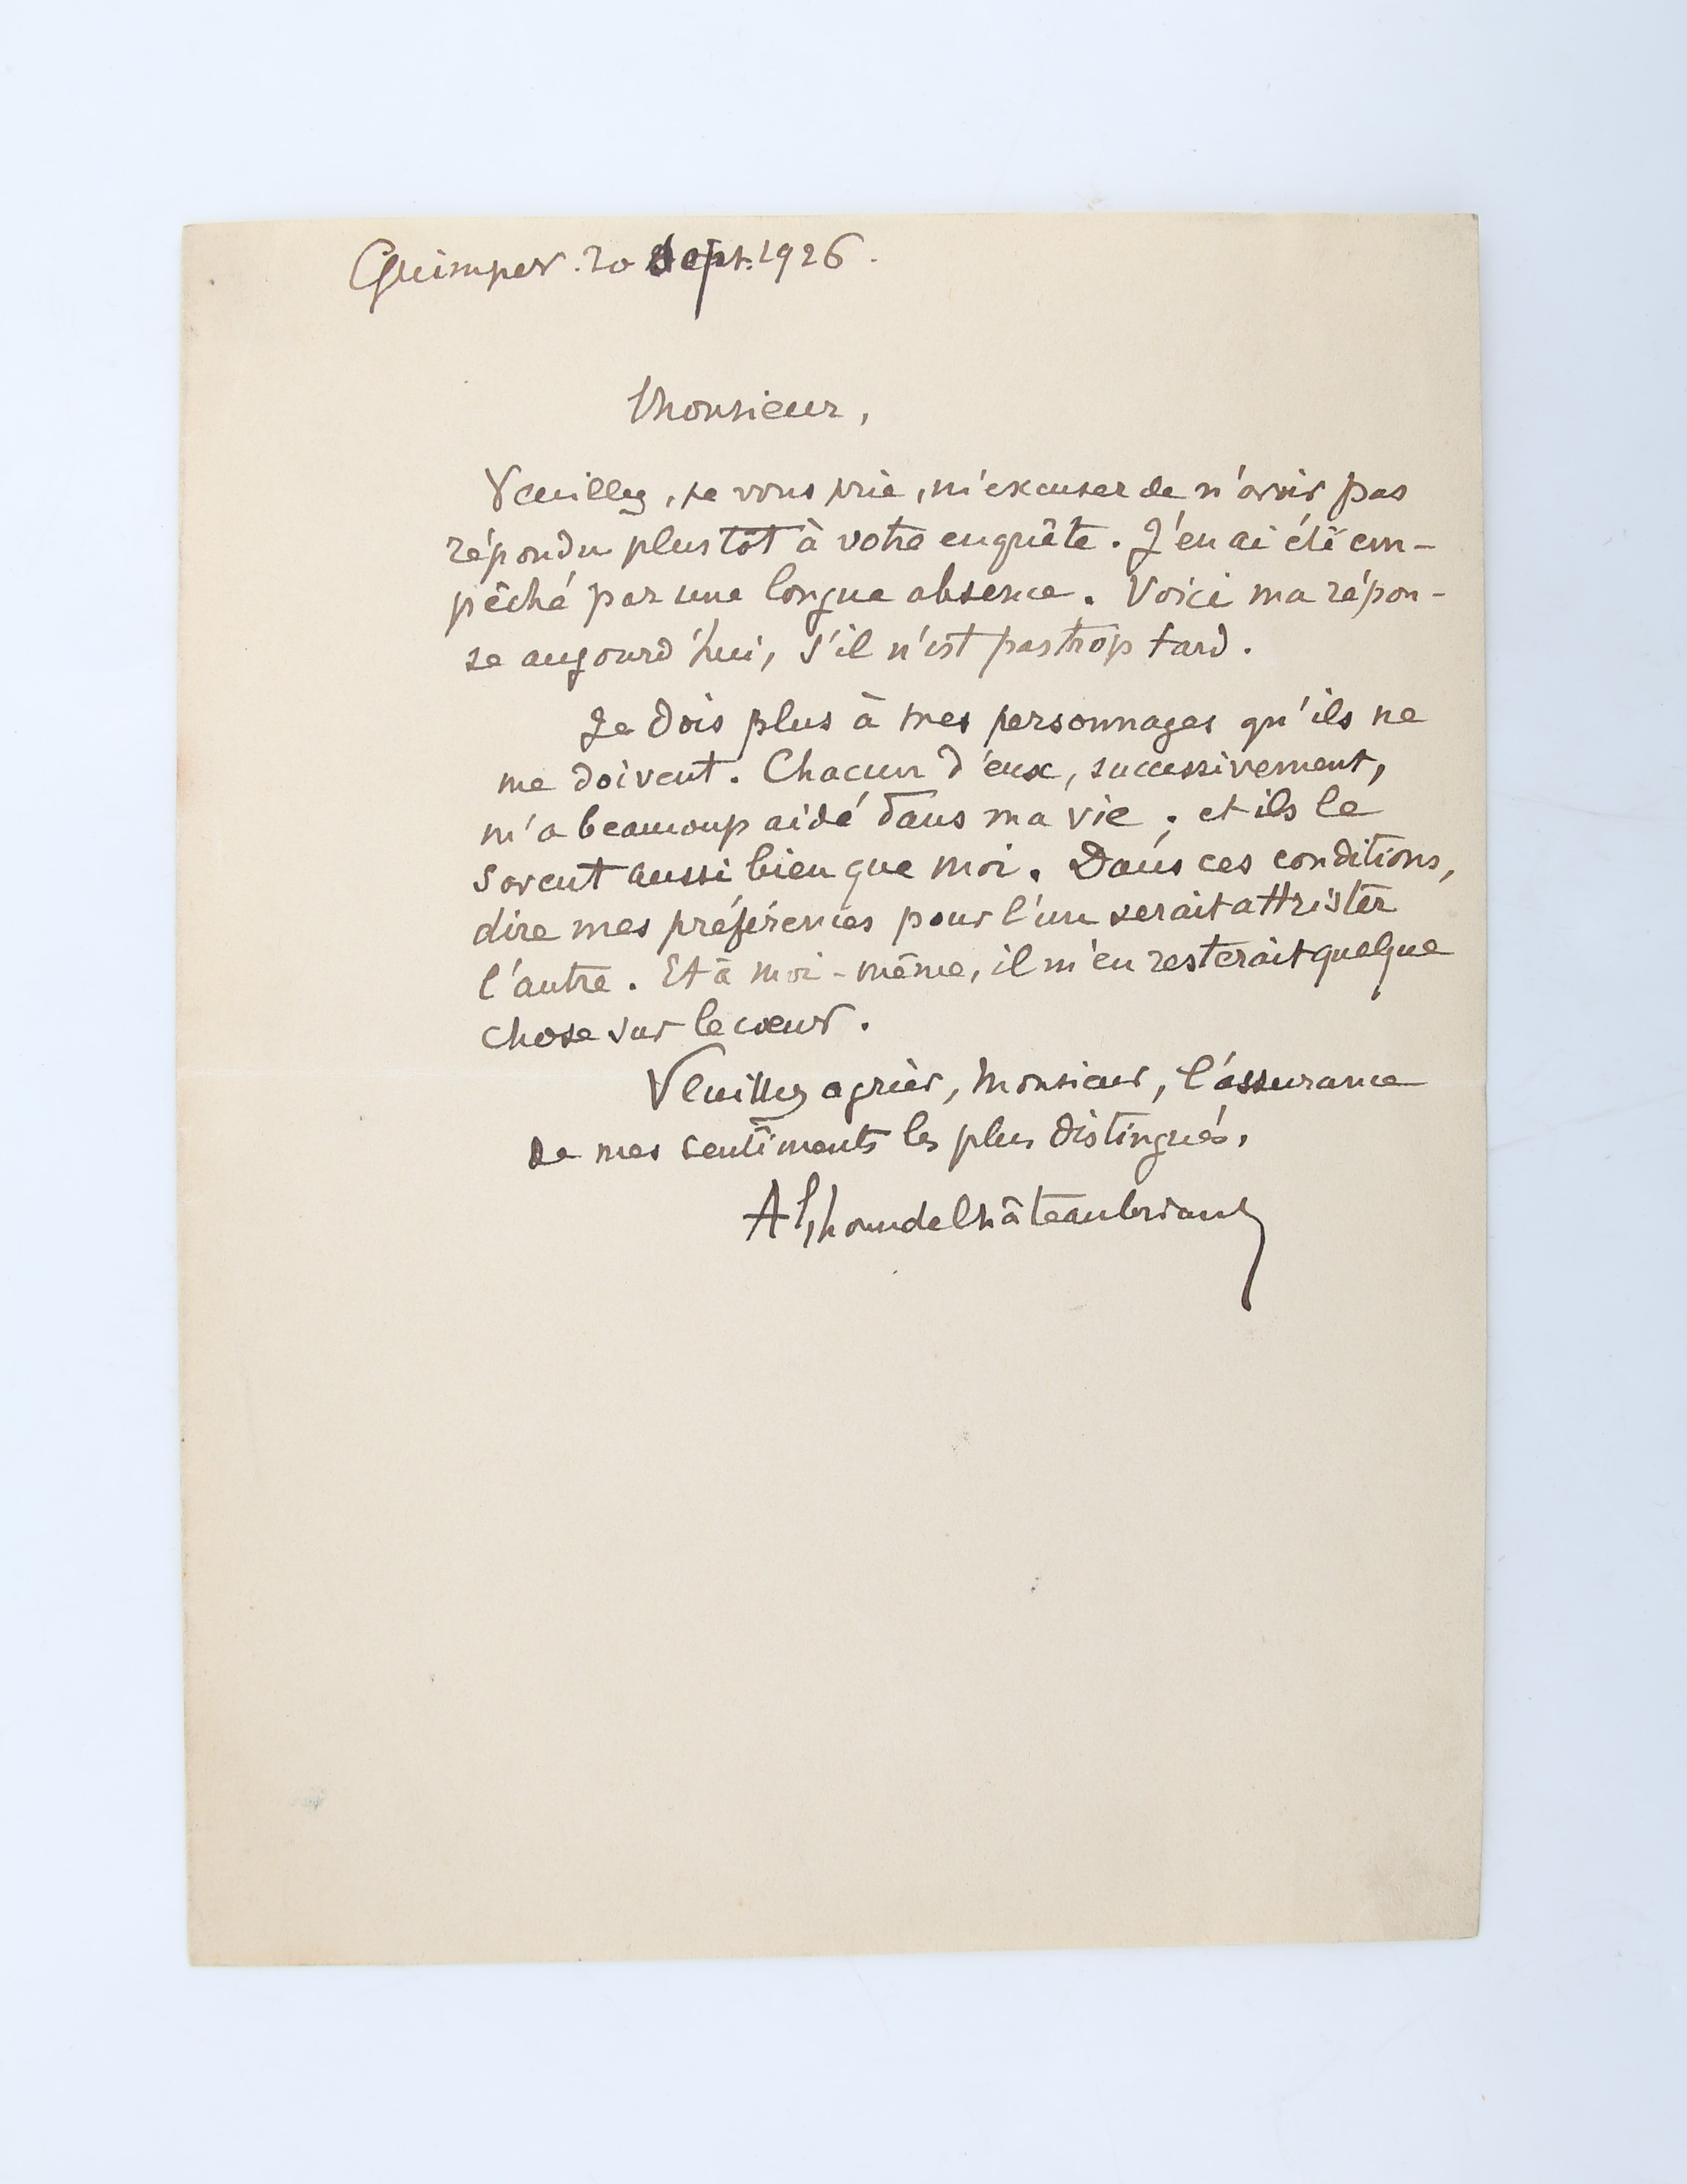 Quimper. 20 Sept. 1926.
Monsieur,
Veuillez, je vous prie, m'excuser de n'avoir pas
répondu plus tôt à votre enquête. J'en ai été em-
pêché par une longue absence. Voici ma répon-
se aujourd'hui, s'il n'est pas trop tard.
Je dois plus à mes personnages qu'ils ne
me doivent. Chacun d'eux, successivement,
m'a beaucoup aidé dans ma vie ; et ils le
savent aussi bien que moi. Dans ces conditions,
dire mes préférences pour l'un serait attrister
l'autre. Et à moi-même, il m'en resterait quelque
chose sur le cœur.
Veuillez agréer, Monsieur, l'assurance
de mes sentiments les plus distingués.
Alphonse de Châteaubriant